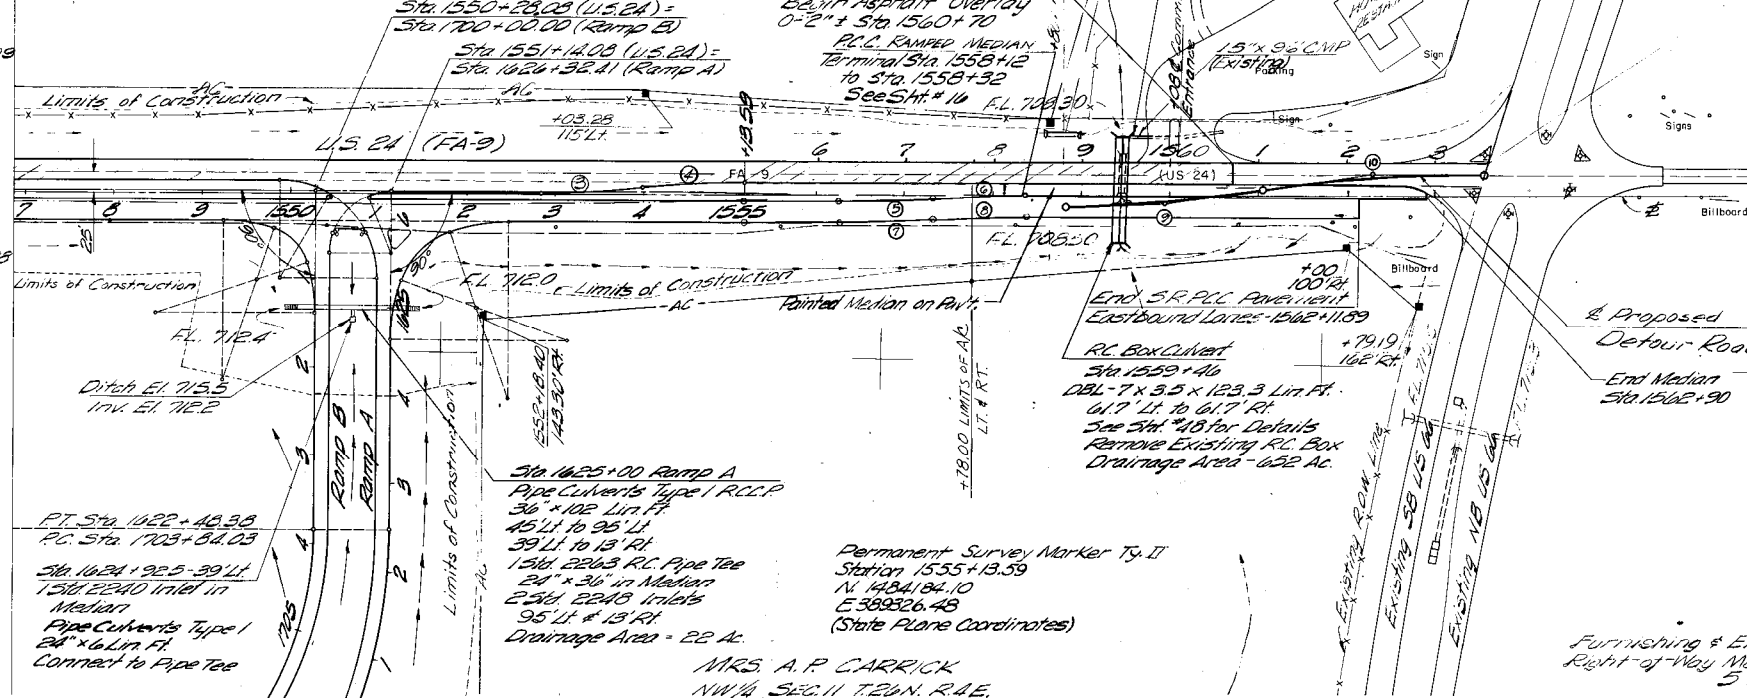 Sta. 1550+28.08 (U.S. 24) =
Sta. 1700+00.00 (Ramp B)
Sta. 1551+14.08 (U.S. 24) =
Sta. 1626+32.41 (Ramp A)
Begin Asphalt Overlay
0-2" ± Sta. 1560+70
P.C.C. RAMPED MEDIAN
Terminal Sta. 1558+12
to Sta. 1558+32
See Sht. # 16
F.L. 708.30
15" x 96' CMP
(Existing)
Parking
Sign
Entrance
Sign
Signs
Limits of Construction
AC
AC
+03.28
115' Lt.
+13.59
U.S. 24 (FA-9)
6 7 8 9 1560 1 2 3
3 4 FA 9 (US 24) 10
7 8 9 1550 1 2 3 4 1555
5 6 7 8 9
Billboard
25'
90°
6
90°
F.L. 712.0
F.L. 708.50
Limits of Construction
Limits of Construction
AC
Painted Median on Pav't.
+00
100' Rt.
Billboard
End S.R. PCC Pavement
Eastbound Lanes - 1562+11.89
₵ Proposed
Detour Road
F.L. 712.4
1625
R.C. Box Culvert
Sta. 1559+46
DBL - 7 x 3.5 x 123.3 Lin. Ft.
61.7' Lt. to 61.7' Rt.
See Sht. #48 for Details
Remove Existing R.C. Box
Drainage Area - 652 Ac.
+79.19
162' Rt.
End Median
Sta. 1562+90
Ditch El. 715.5
Inv. El. 712.2
1552+18.40
143.30' Rt.
+78.00 LIMITS OF A/C
LT. & RT.
Ramp B
Ramp A
2
3
4
1705
4
3
2
1
Limits of Construction
AC
Sta. 1625+00 Ramp A
Pipe Culverts Type I R.C.C.P.
36" x 102 Lin. Ft.
45' Lt. to 95' Lt.
39' Lt. to 13' Rt.
1 Std. 2263 R.C. Pipe Tee
24" x 36" in Median
2 Std. 2248 Inlets
95' Lt. & 13' Rt.
Drainage Area = 22 Ac.
P.T. Sta. 1622+48.38
P.C. Sta. 1703+84.03
Sta. 1624+92.5-39' Lt.
1 Std. 2240 Inlet in
Median
Pipe Culverts Type I
24" x 6 Lin. Ft.
Connect to Pipe Tee
Permanent Survey Marker Ty. II
Station 1555+13.59
N. 1484184.10
E 389326.48
(State Plane Coordinates)
MRS. A.P. CARRICK
NW¼ SEC. 11 T.26N. R.4E.
Existing R.O.W. Line
Existing SB US
Existing NB US
Furnishing & E
Right-of-Way M
5